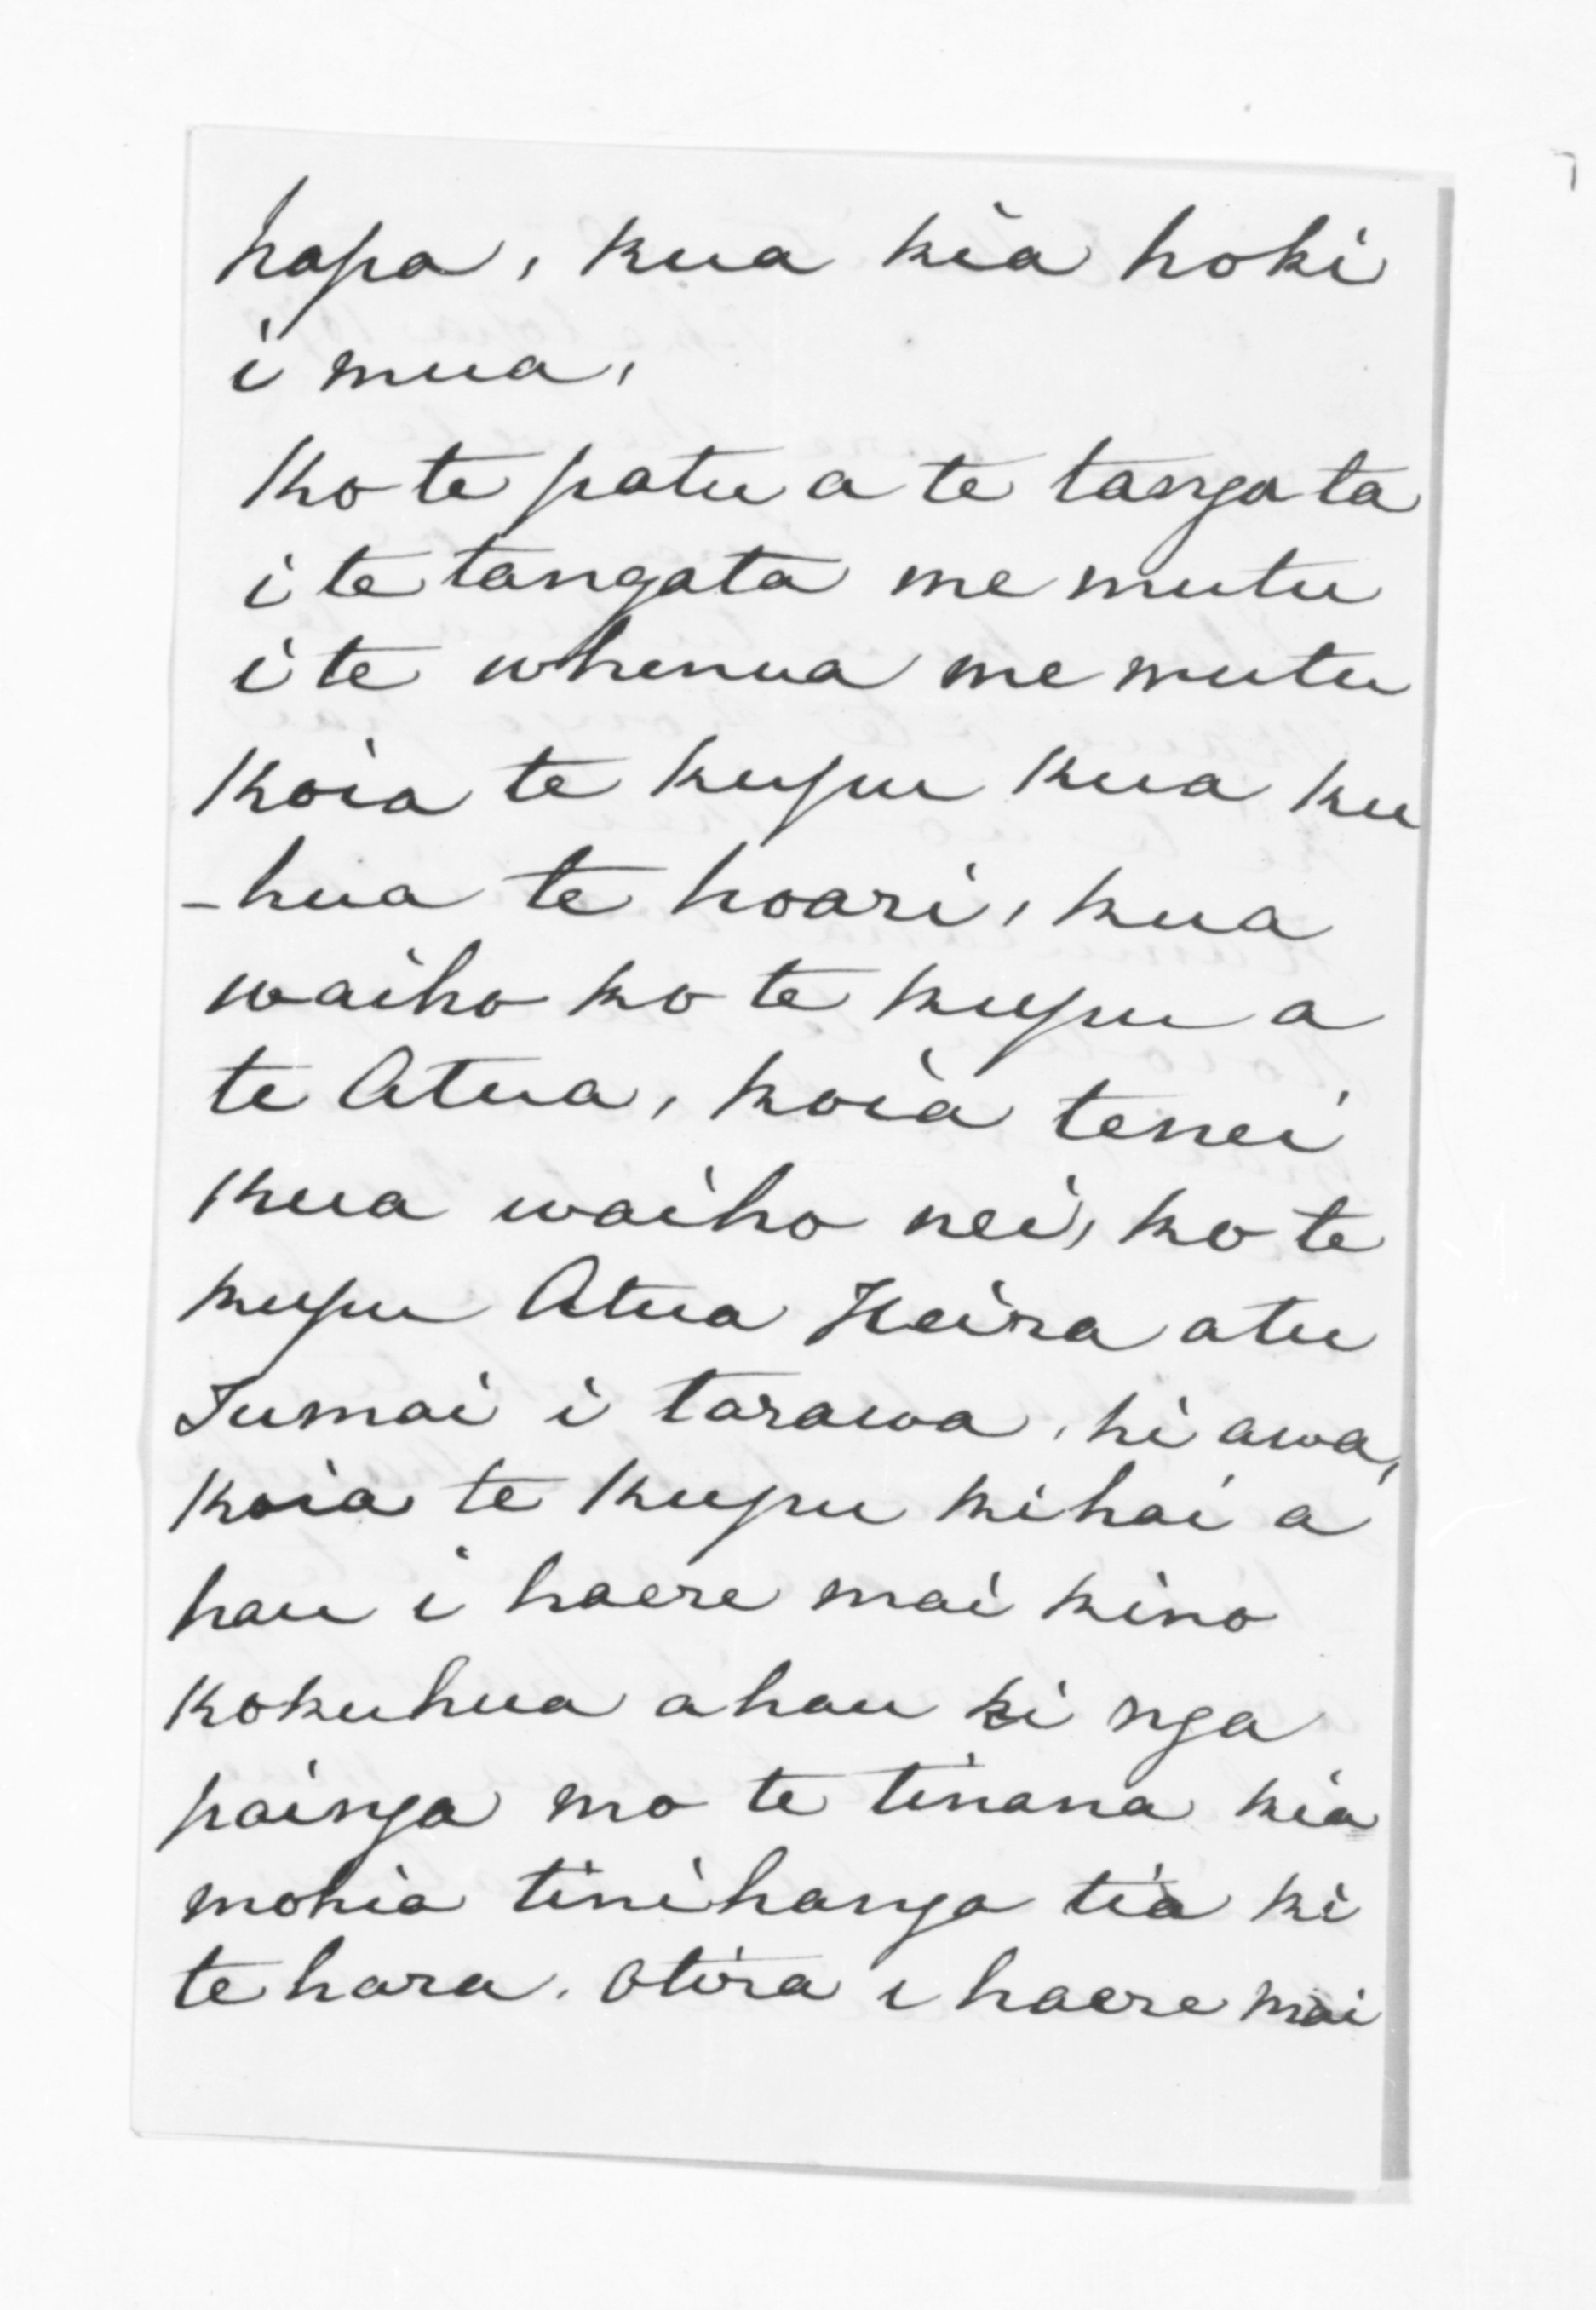 hapa, kua kia hoki
i mua,
Ko te patu a te tangata
i te tangata me mutu
i te whenua me mutu
Koia te kupu kua ku
-hua te hoari, kua
waiho ko te kupu a
te Atua, koia tenei
kua waiho nei, ko te
kupu Atua Heira atu
Tumai i tarawa, hi awa,
Koia te kupu kihai a
hau i haere mai kino
kokuhua ahau ki nga
painga mo te tinana kia
mohia tinihanga tia ki
te hara. otira i haere mai